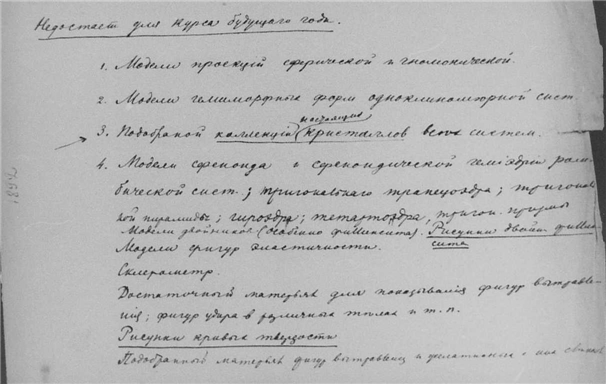 Недостает для курса будущаго года.
1. Модели проекцій сферической и гномонической.
2. Модели гемиморфныхъ формъ одноклиномѣрной сист.
настоящихъ
3. Подобраной коллекціи кристалловъ всѣхъ системъ.
4. Модели сфеноида и сфеноидической геміэдріи ром-
бической сист.; тригональнаго трапецоэдра; тригональ-
ной пирамиды; гироэдра; тетартоэдра, тригон. призмы
Модели двойниковъ (особенно филипсита). Рисунки двойн. филип-
сита
Модели фигуръ эластичности.
Склерометръ.
Достаточный матерьялъ для показыванія фигуръ вытравле-
нія; фигуръ удара въ различныхъ тѣлахъ и т. п.
Рисунки кривыхъ твердости
Подобранный матерьялъ фигуръ вытравленія
189